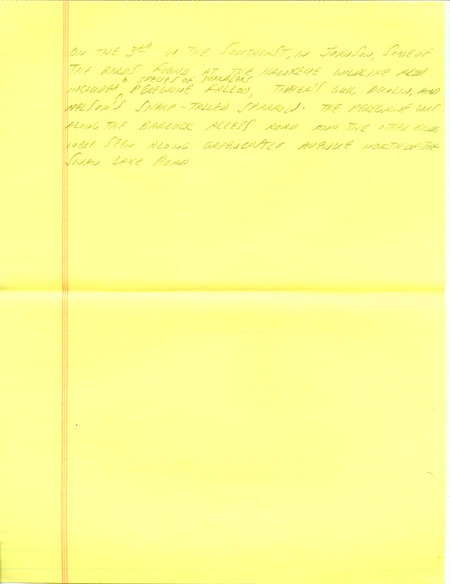 ON THE 3rd IN THE SOUTHEAST, IN JOHNSON, SOME OF
THE BIRDS FOUND AT THE HAWKEYE WILDLIFE AREA
INCLUDED 6 SPECIES OF WARBLERS PEREGRINE FALCON, THAYER'S GULL, DUNLIN, AND
NELSON'S SHARP-TAILED SPARROW. THE PEREGRINE WAS
ALONG THE BABCOCK ACCESS ROAD AND THE OTHER BIRDS
WERE SEEN ALONG GREENCASTLE AVENUE NORTH OF THE
SWAN LAKE ROAD